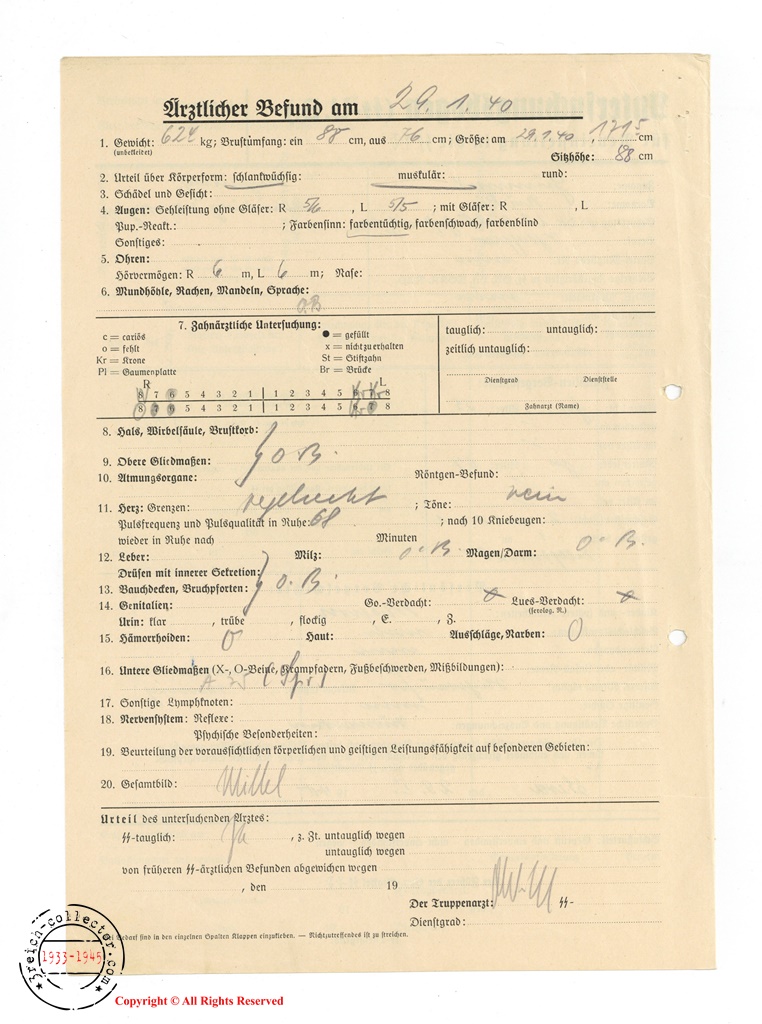 Ärztlicher Befund am 29. 1. 40
1. Gewicht: 62⁴ kg; Brustumfang: ein 88 cm, aus 76 cm; Größe: am 29.1.40, 171⁵ cm
(unbekleidet)
Sitzhöhe: 88 cm
2. Urteil über Körperform: schlankwüchsig: muskulär: rund:
3. Schädel und Gesicht:
4. Augen: Sehleistung ohne Gläser: R 5/6, L 5/5; mit Gläser: R , L
Pup.-Reakt.: ; Farbensinn: farbentüchtig, farbenschwach, farbenblind
Sonstiges:
5. Ohren:
Hörvermögen: R 6 m, L 6 m; Nase:
6. Mundhöhle, Rachen, Mandeln, Sprache:
O.B
7. Zahnärztliche Untersuchung:
c = cariös
o = fehlt
Kr = Krone
Pl = Gaumenplatte
● = gefüllt
x = nicht zu erhalten
St = Stiftzahn
Br = Brücke
R L
8 7 6 5 4 3 2 1 | 1 2 3 4 5 6 7 8
8 7 6 5 4 3 2 1 | 1 2 3 4 5 6 7 8
tauglich: untauglich:
zeitlich untauglich:
Dienstgrad Dienststelle
Zahnarzt (Name)
8. Hals, Wirbelsäule, Brustkorb:
9. Obere Gliedmaßen: O.B.
10. Atmungsorgane: Röntgen-Befund:
11. Herz: Grenzen: regelrecht ; Töne: rein
Pulsfrequenz und Pulsqualität in Ruhe: 68 ; nach 10 Kniebeugen:
wieder in Ruhe nach Minuten
12. Leber: Milz: O.B. Magen/Darm: O.B.
Drüsen mit innerer Sekretion:
13. Bauchdecken, Bruchpforten: O.B.
14. Genitalien: Go.-Verdacht: Lues-Verdacht:
(serolog. R.)
Urin: klar , trübe , flockig , E. , Z.
15. Hämorrhoiden: O Haut: Ausschläge, Narben: O
16. Untere Gliedmaßen (X-, O-Beine, Krampfadern, Fußbeschwerden, Mißbildungen):
17. Sonstige Lymphknoten:
18. Nervensystem: Reflexe:
Psychische Besonderheiten:
19. Beurteilung der voraussichtlichen körperlichen und geistigen Leistungsfähigkeit auf besonderen Gebieten:
20. Gesamtbild: Mittel
Urteil des untersuchenden Arztes:
SS-tauglich: Ja , z. Zt. untauglich wegen
untauglich wegen
von früheren SS-ärztlichen Befunden abgewichen wegen
, den 19
Der Truppenarzt: SS-
Dienstgrad:
Bedarf sind in den einzelnen Spalten Klappen einzukleben. — Nichtzutreffendes ist zu streichen.
3reich-collector.com
1933-1945
Copyright © All Rights Reserved